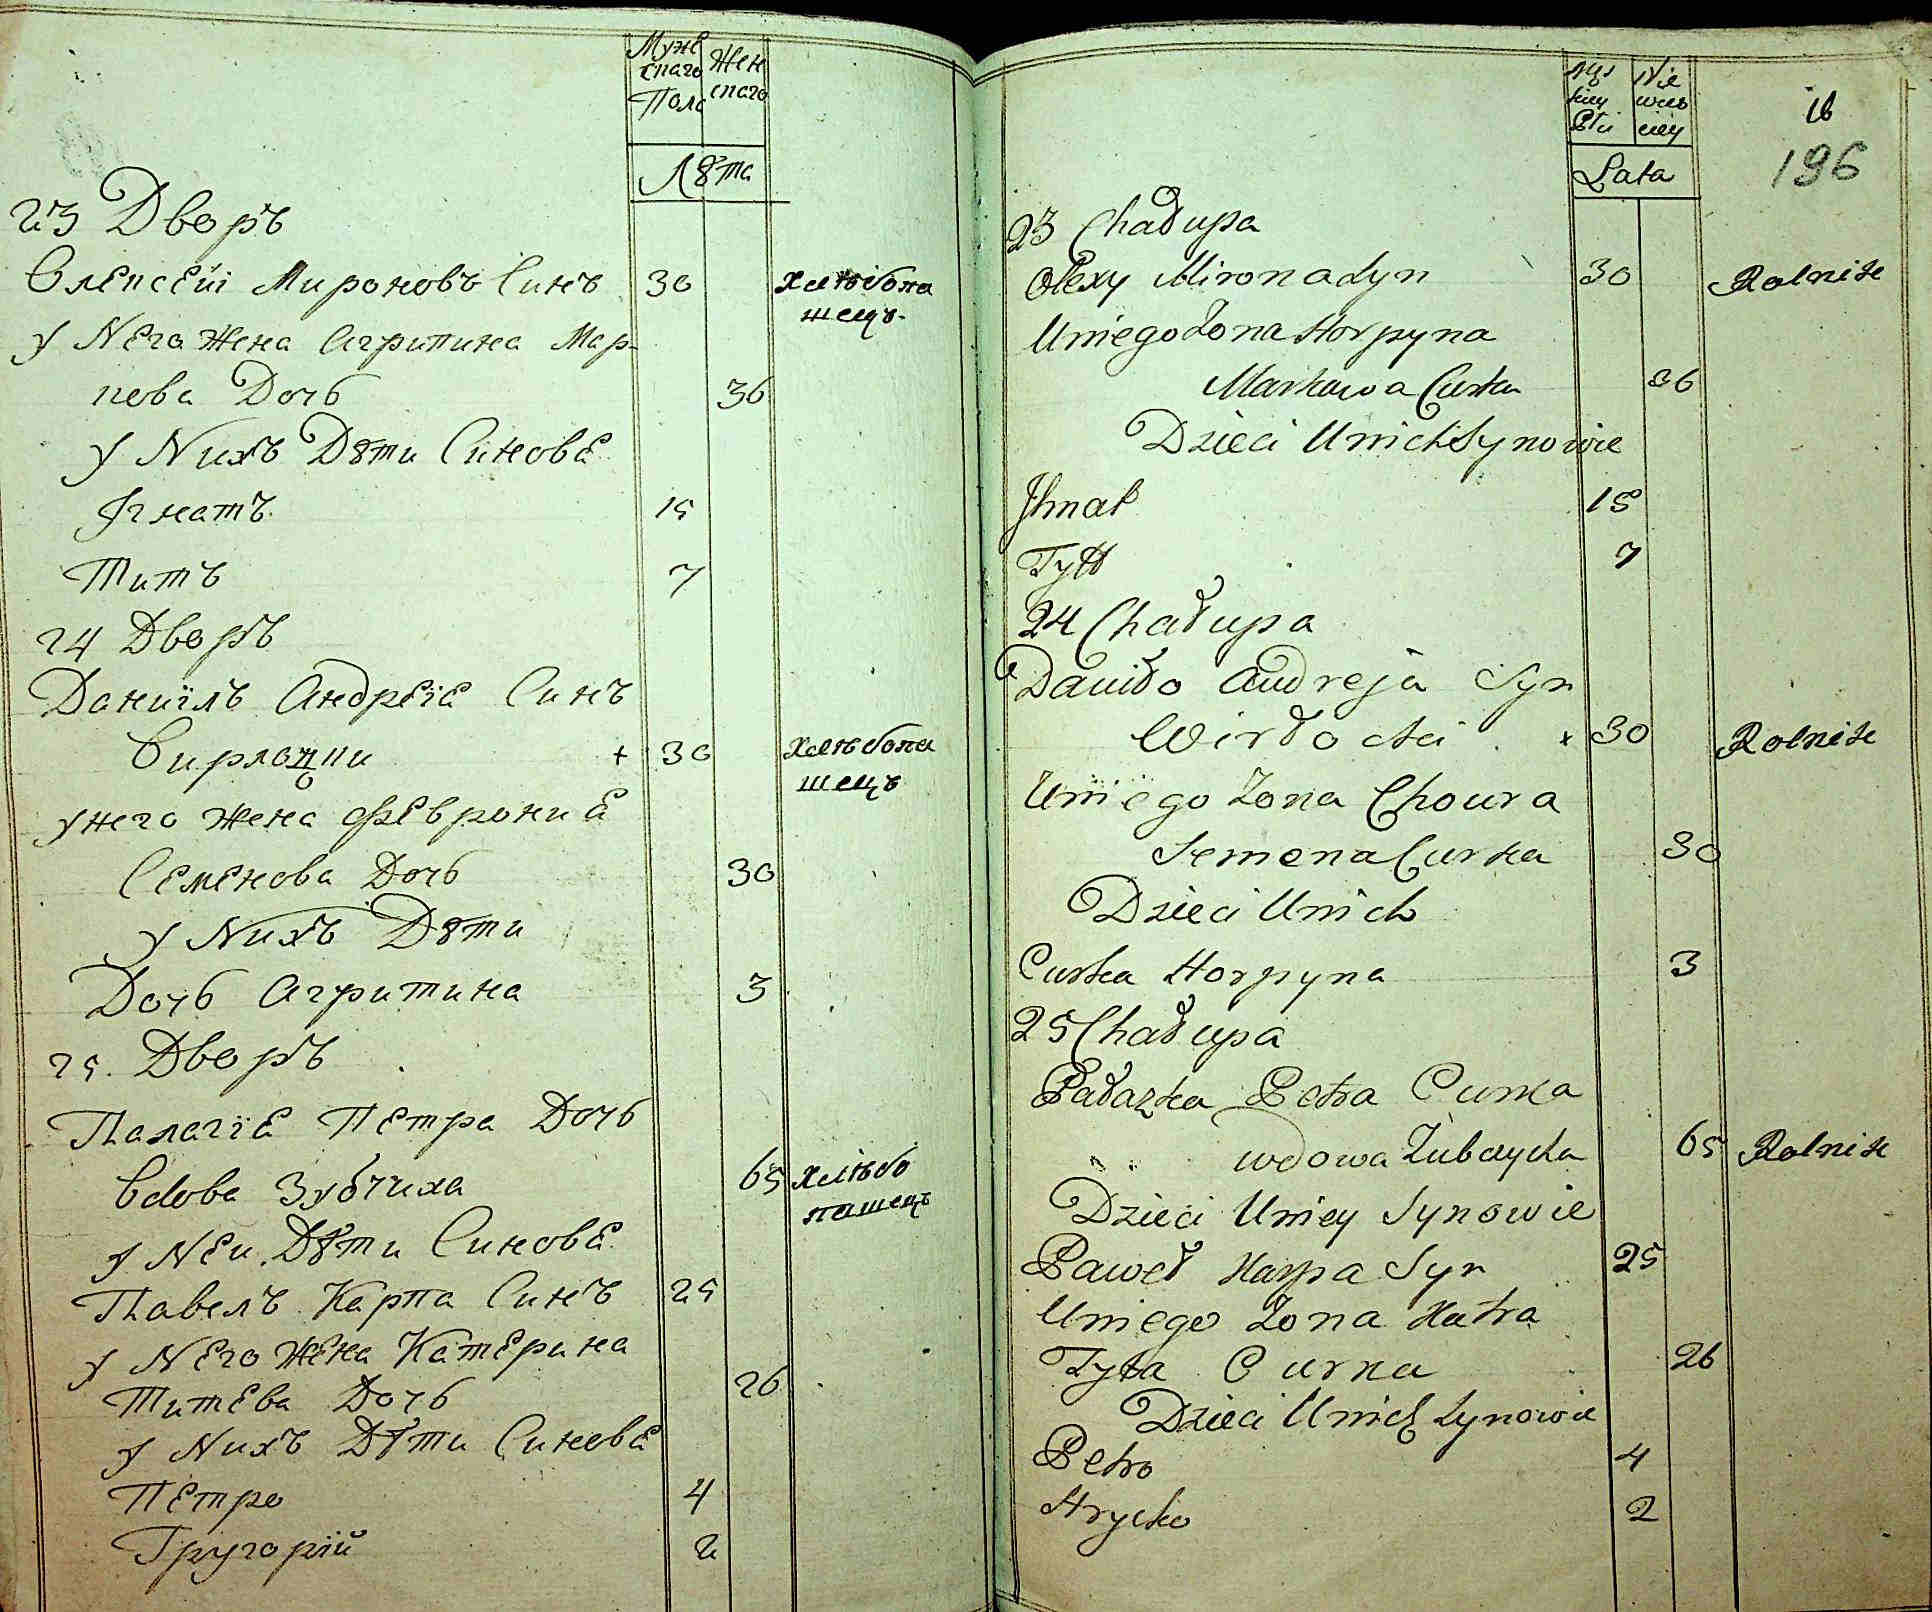 Муже Жен
скаго скаго
Пола
Лѣта
23 Дворъ
Олексей Мироновъ Синъ 30 хлѣбопа
шецъ
у Него Жена Агрипина Мар-
кова Дочь 36
у Нихъ Дѣти Синове
Ігнатъ 15
Титъ 7
24 Дворъ
Даниїлъ Андреіа Синъ
Вирлоцки + 30 хлѣбопа
шецъ
у него жена Феврониа
Семенова Дочь 30
у Нихъ Дѣти
Дочь Агрипина 3
25. Дворъ
Палагіа Петра Дочь
Вдова Зубчиха 65 хлѣбо
пашецъ
у Неи Дѣти Синове
Павелъ Карпа Синъ 25
у Него Жена Катерина
Титева Дочь 26
у Нихъ Дѣти Синове
Петро 4
Григорій 2
16
196
Lata
23 Chałupa
Olexy Mirona Syn 30 Rolnik
Uniego Żona Horpyna
Markowa Curka 36
Dzieci Unich Synowie
Ihnat 15
Tytt 7
24 Chałupa
Daniło Andreja Syn
Wirłocki x 30 Rolnik
Uniego Żona Chowra
Semena Curka 30
Dzieci Unich
Curka Horpyna 3
25 Chałupa
Pałazka Petra Curka
wdowa Zubczycha 65 Rolnik
Dzieci Uniey Synowie
Paweł Karpa Syn 25
Uniego Żona Katra
Tyta Curka 26
Dzieci Unich Synowie
Petro 4
Hrycko 2